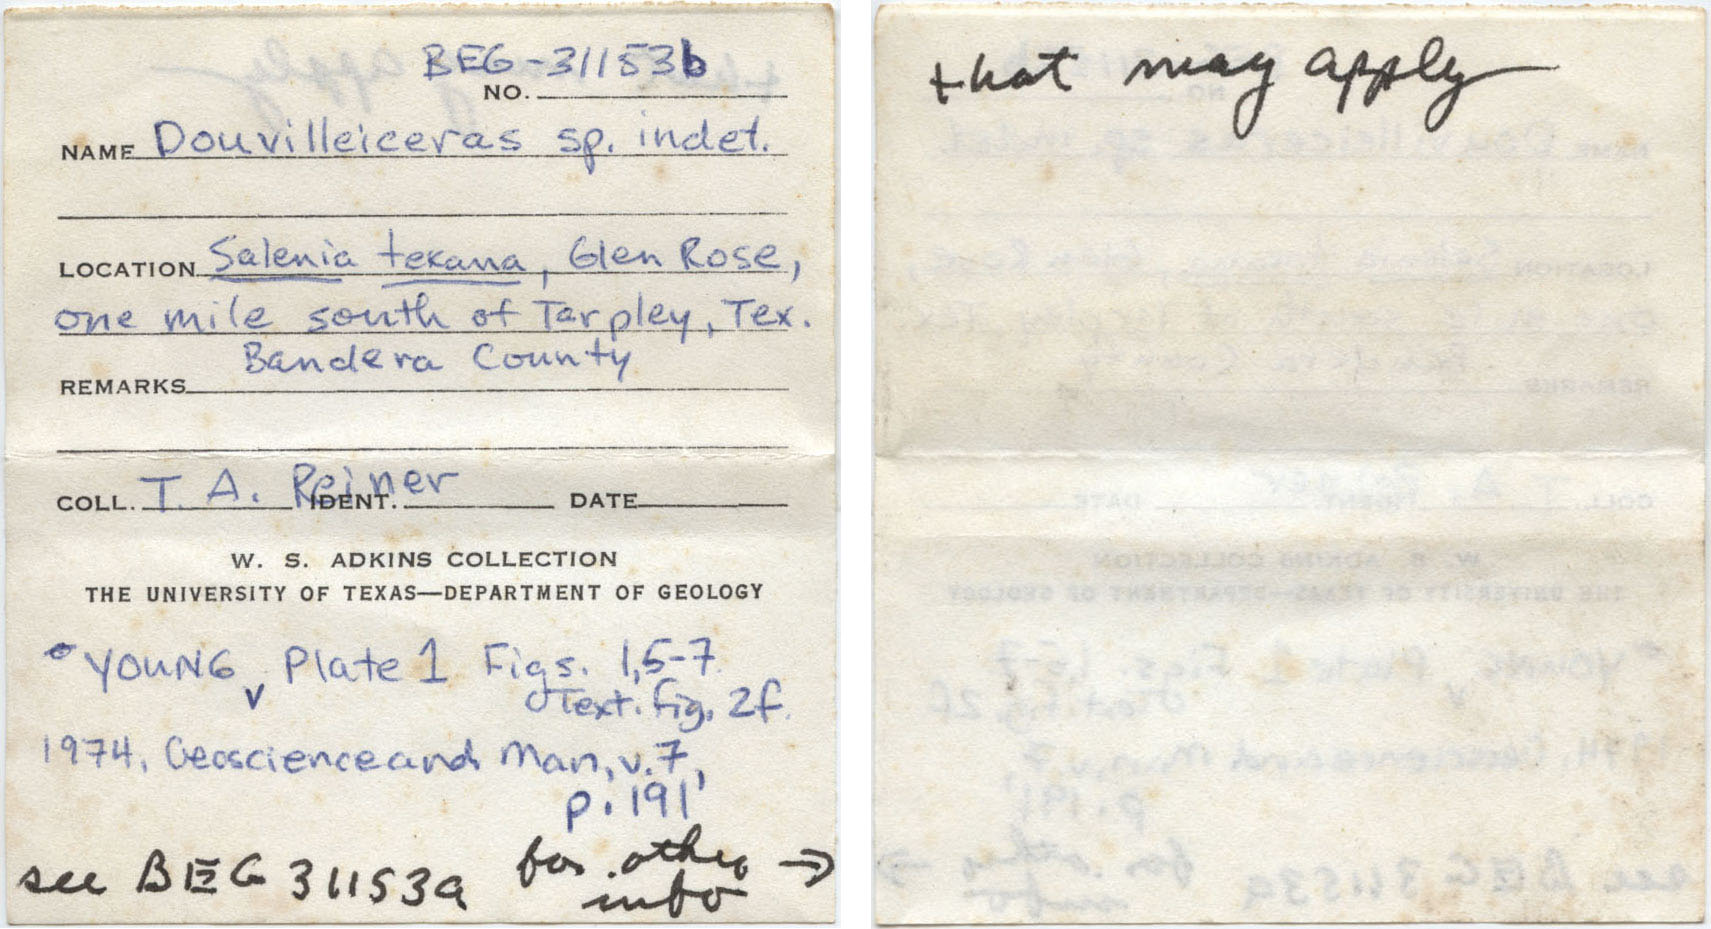 BEG-31153b
NO.
NAME Douvilleiceras sp. indet.
LOCATION Salenia texana, Glen Rose,
one mile south of Tarpley, Tex.
Bandera County
REMARKS
COLL. T. A. Reiner IDENT. DATE
W. S. ADKINS COLLECTION
THE UNIVERSITY OF TEXAS—DEPARTMENT OF GEOLOGY
YOUNG, Plate 1 Figs. 1,5-7
Text. fig. 2f.
1974, Geoscience and Man, v. 7,
p. 191
see BEG 31153a for other →
info
that may apply